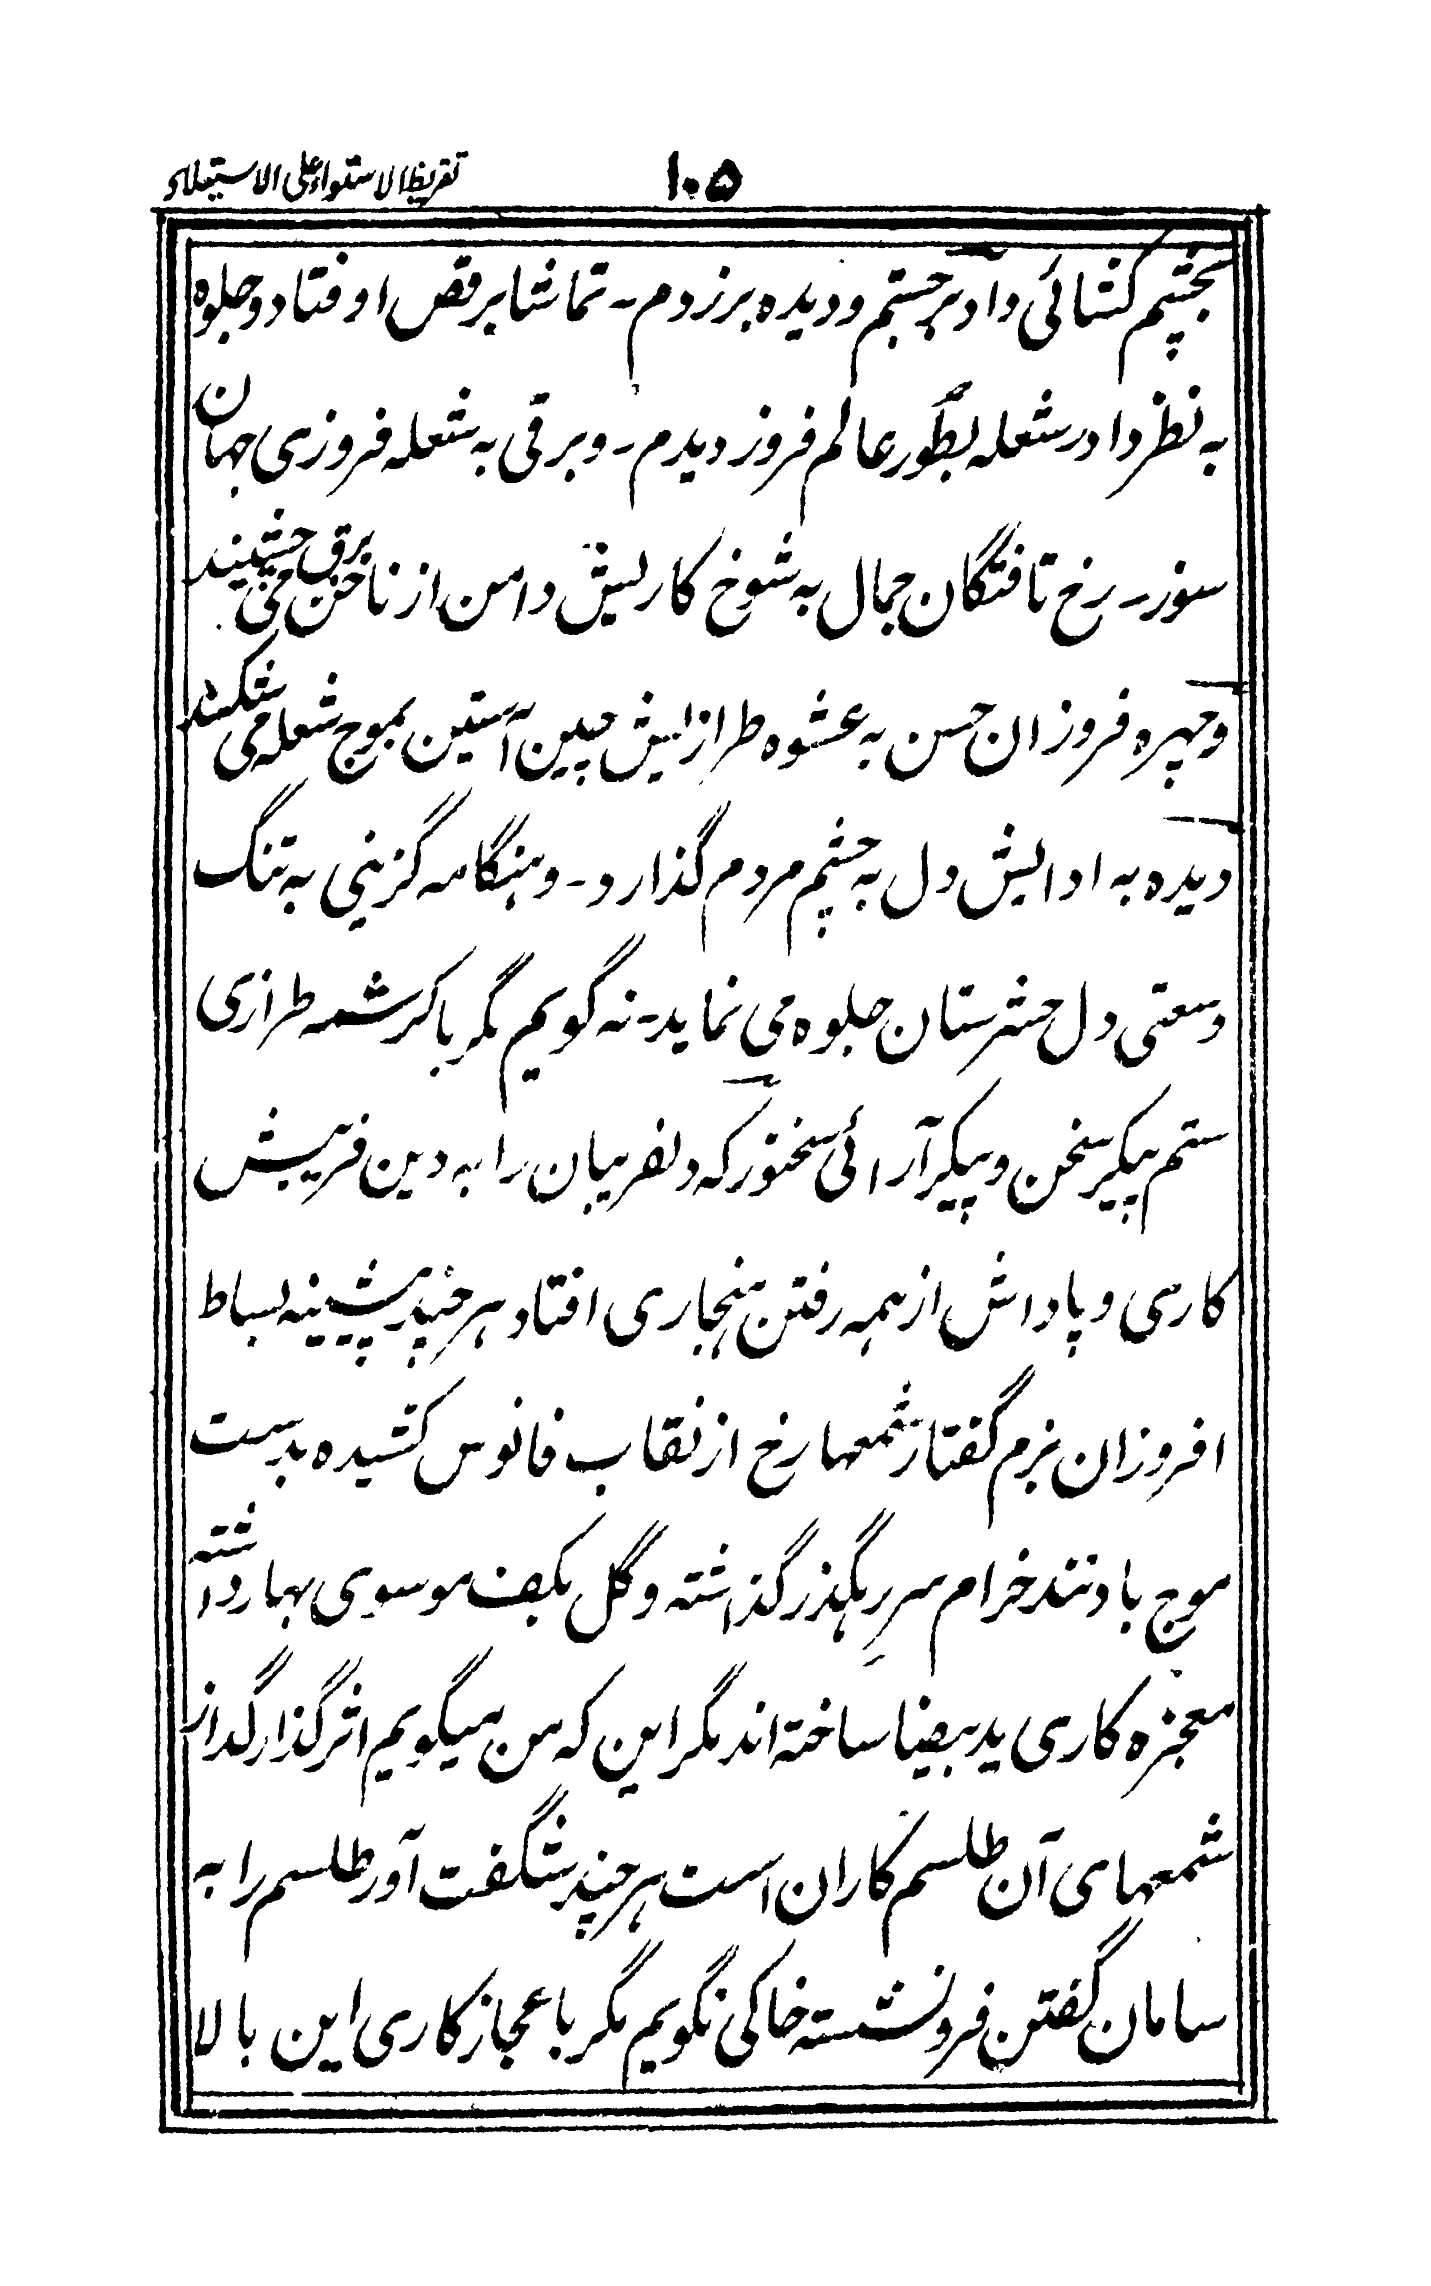 ۱۰۵ تقریظ الاستواء علی الاستعلاء
بچشم کشائی داد برجستم و دیده برزدم ـ تماشا برقص اوفتاد و جلوه
به نظر داد در شعله بطور عالم فروز دیدم ـ و برقی به شعله فروزی جهان
سوز ـ رخ تافتگان جمال به شوخ کاریش دامن از ناخن برق می چنیند
و چهره فروزان حسن به عشوه طرازیش چین آستین بموج شعله می شکنند
دیده به ادایش دل به چشم مردم گذارد ـ و هنگامه گزینی به تنگ
وسعتی دل حشرستان جلوه می نماید ـ نه گویم مگر با کرشمه طرازی
ستم پیکر سخن و پیکر آرائی سخنور که دلفریبان را به دین فریبش
کاری و پاداش از همه رفتن هنجاری افتاد هر چند پیشینه بساط
افروزان بزم گفتار شمعها رخ از نقاب فانوس کشیده بدست
موج باد تند خرام سر رهگذر گذاشته و گل بکف موسوی بهار داشته
معجزه کاری ید بیضا ساخته اند مگر این که من میگویم اثر گذار گداز
شمعهای آن طلسم کاران است هر چند شگفت آور طلسم را به
سامان گفتن فرونشسته خاکی نگویم مگر با عجاز کاری این بالا